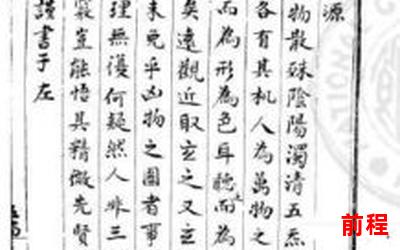 源
物散殊陰陽濁清五炁
各有其机人為萬物之
而為形為色耳聽而為
矣遠觀近取玄之又玄
未免乎凶物之圖者事
理無復何疑然人非三
竅豈能悟其精微先賢
謹書于左
前程